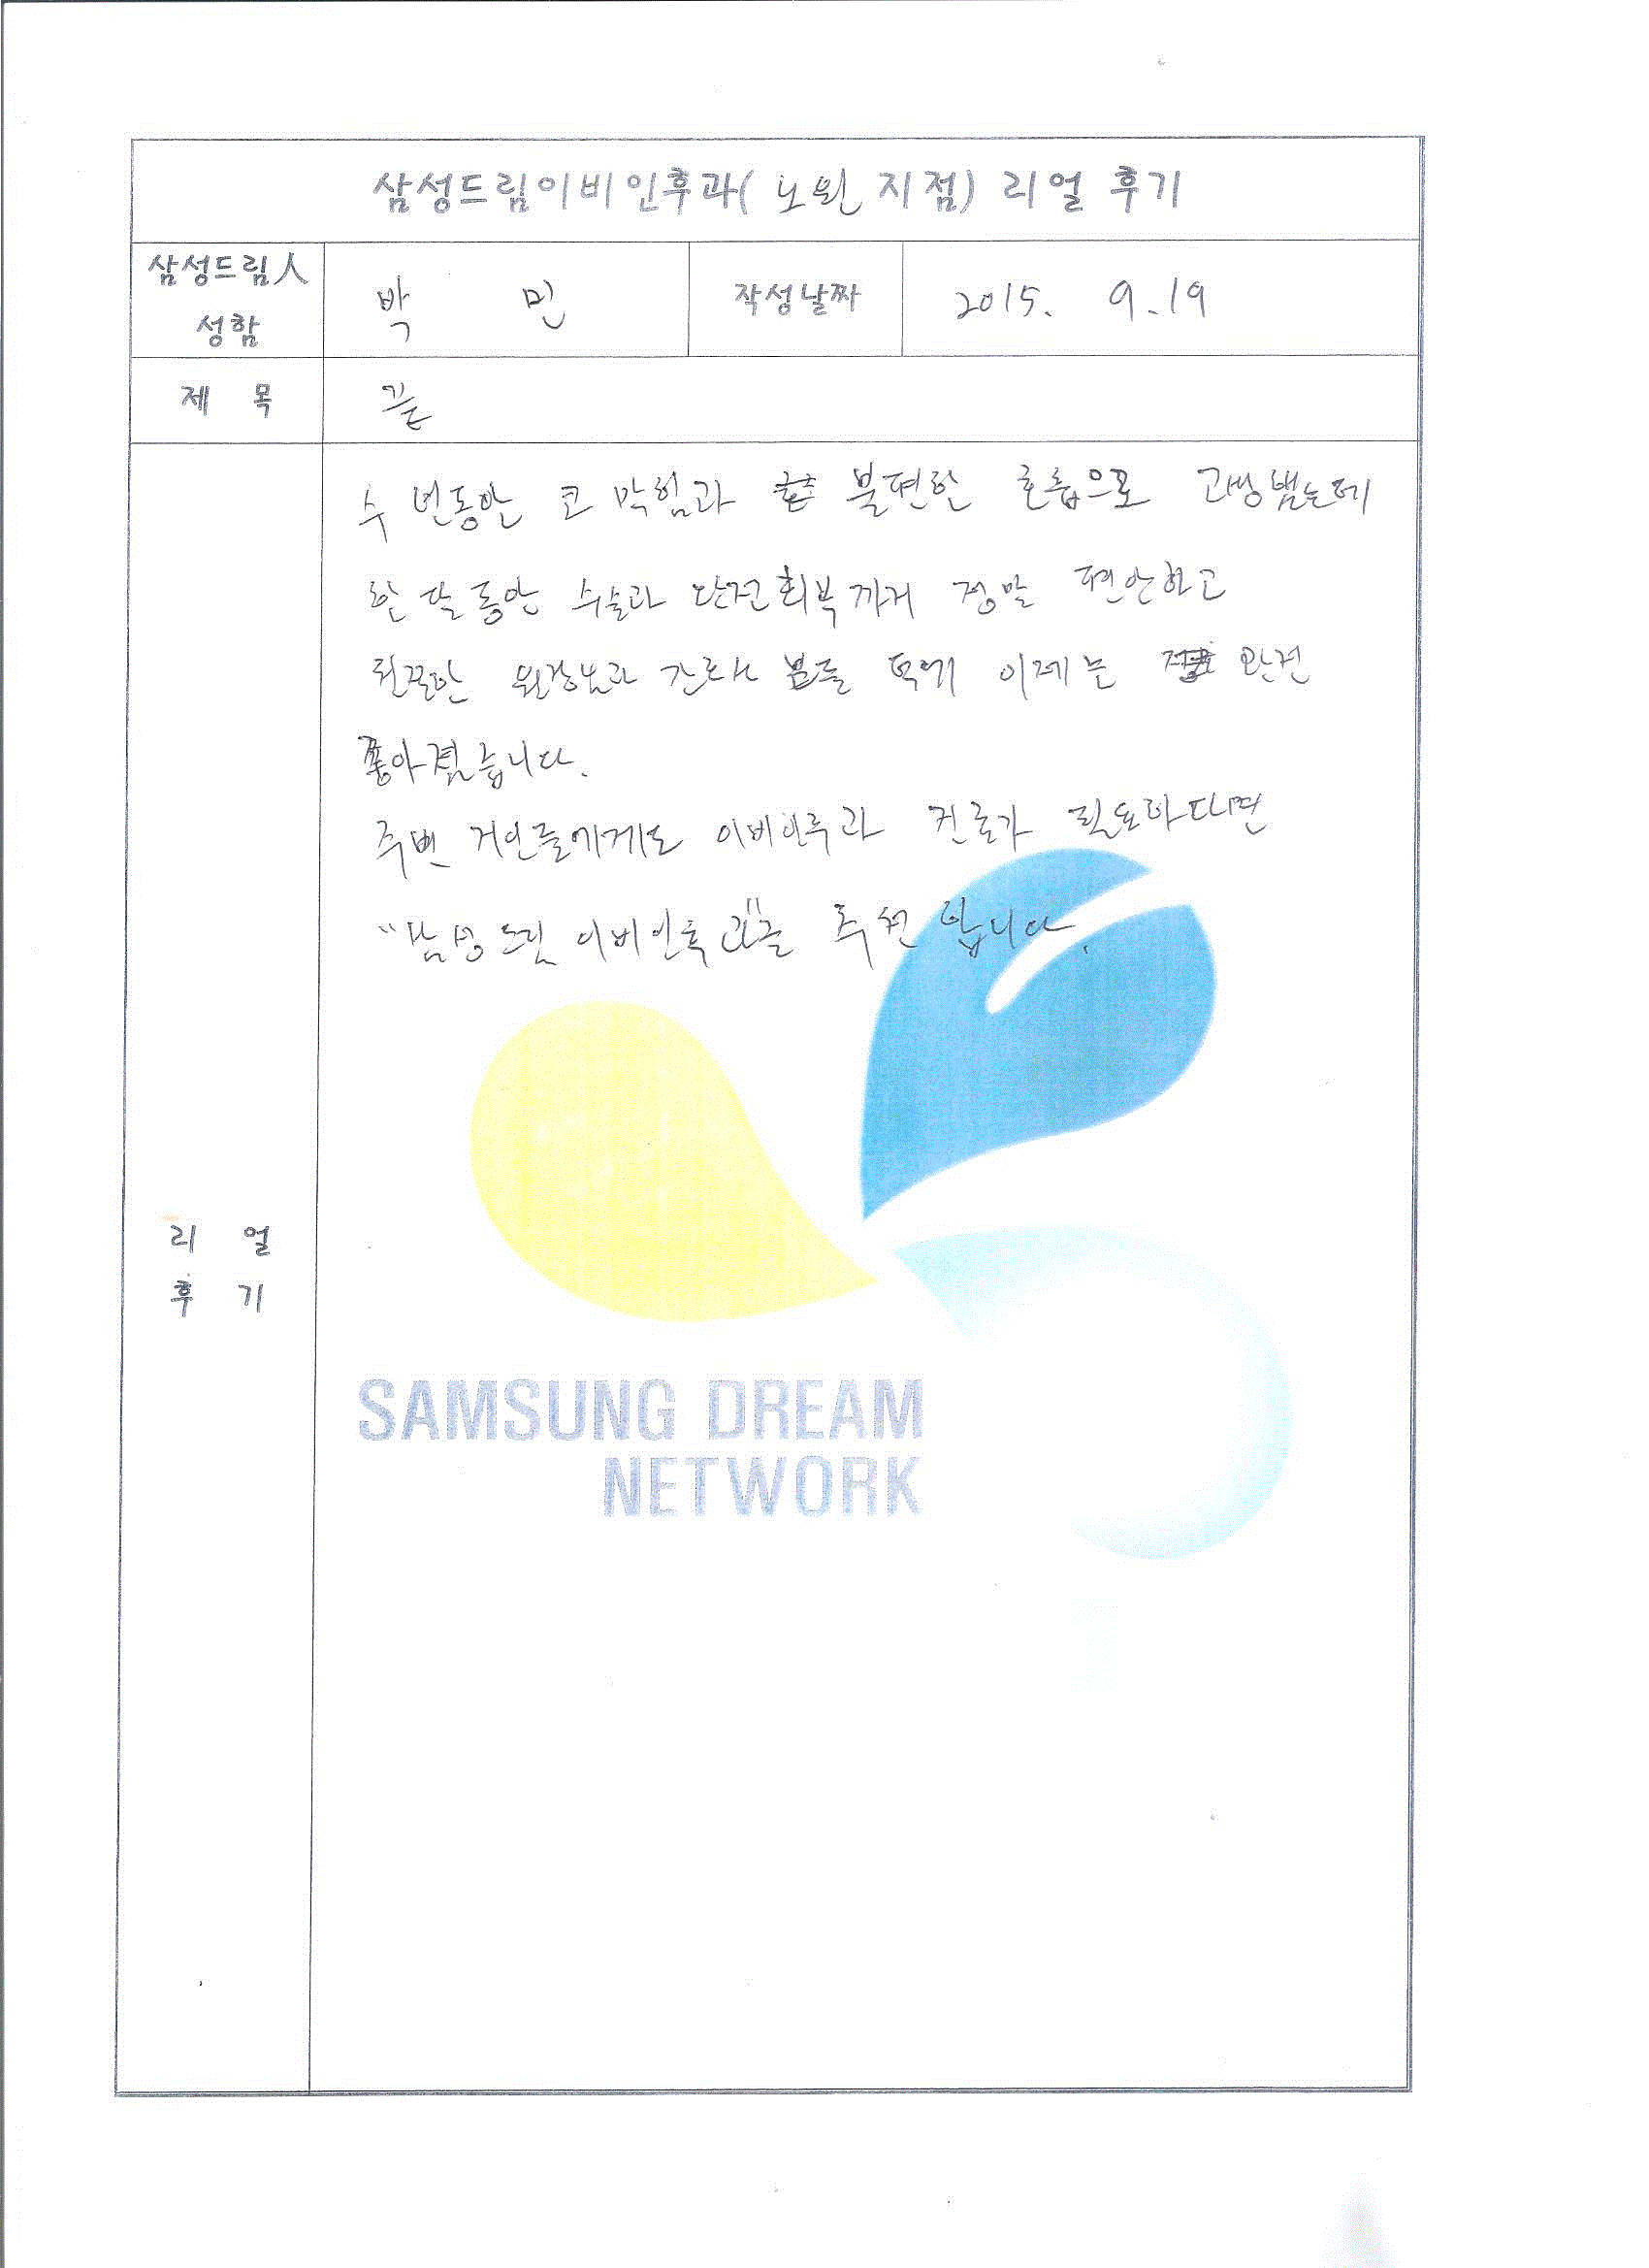 삼성드림이비인후과( 노원 지점) 리얼 후기
삼성드림人
성함
박 민
작성날짜
2015. 9.19
제 목
수 년동안 코 막힘과 불편한 호흡으로 고생했는데
한 달 동안 수술과 완전회복까지 정말 편안하고
친절한 원장님과 간호사 분들 덕에 이제는 완전
좋아졌습니다.
주변 지인들에게도 이비인후과 진료가 필요하다면
"삼성드림 이비인후과"를 추천 합니다.
리 얼
후 기
SAMSUNG DREAM
NETWORK